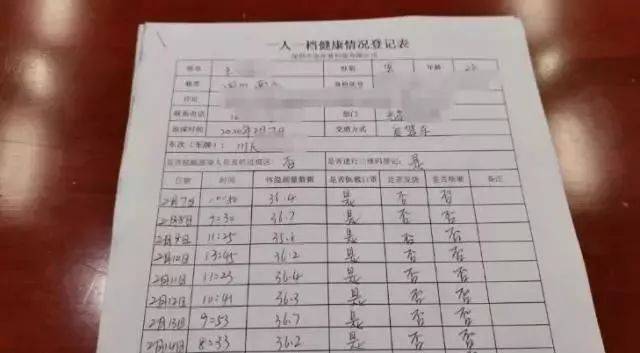 一人一档健康情况登记表
姓名 性别 男 年龄
籍贯 身份证号
住址
联系电话 部门
返深时间 2020年2月7日 交通方式 自驾车
车次（车牌）：川
是否接触感染人员及转过疫区： 否 是否进行二维码登记： 是
日期 时间 体温测量数据 是否佩戴口罩 是否发烧 是否咳嗽 备注
2月7日 36.4 是 否 否
2月8日 9:30 36.7 是 否 否
2月9日 11:25 是 否 否
2月10日 13:45 36.2 是 否 否
2月11日 11:23 36.4 是 否 否
2月12日 10:41 36.3 是 否 否
2月13日 9:53 36.7 是 否 否
2月14日 8:33 36.2 是 否 否